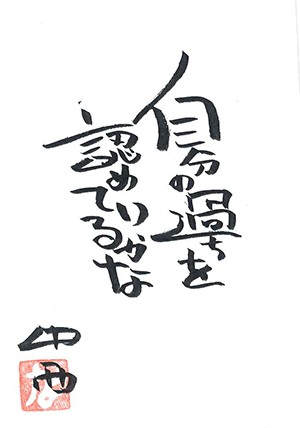 自分の過ちを
認めているかな
中西